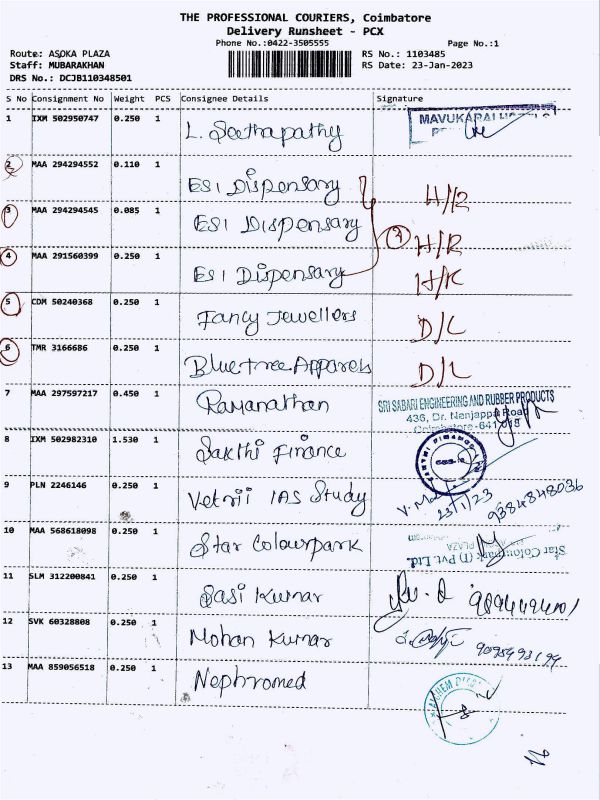 THE PROFESSIONAL COURIERS, Coimbatore
Delivery Runsheet - PCX
Phone No.:0422-3505555 Page No.:1
Route: ASOKA PLAZA RS No.: 1103485
Staff: MUBARAKHAN RS Date: 23-Jan-2023
DRS No.: DCJB110348501
S No Consignment No Weight PCS Consignee Details Signature
1 IXM 502950747 0.250 1 L. Seethapathy MAVUKARAI
2 MAA 294294552 0.110 1 ESI Dispensary H/R
3 MAA 294294545 0.085 1 ESI Dispensary H/R
4 MAA 291560399 0.250 1 ESI Dispensary H/R
5 CDM 50240368 0.250 1 Fancy Jewellers D/L
6 TMR 3166686 0.250 1 Bluetree Apparels D/L
7 MAA 297597217 0.450 1 Ramanathan SRI SABARI ENGINEERING AND RUBBER PRODUCTS
436, Dr. Nanjappa Road
Coimbatore-641 018
8 IXM 502982310 1.530 1 Sakthi Finance
9 PLN 2246146 0.250 1 Vetrii IAS Study 23/1/23 9384848036
10 MAA 568618098 0.250 1 Star Colourpark Star Colourpark (I) Pvt. Ltd.
PLAZA
11 SLM 312200841 0.250 1 Sasi Kumar
12 SVK 60328808 0.250 1 Mohan Kumar
13 MAA 859056518 0.250 1 Nephromed